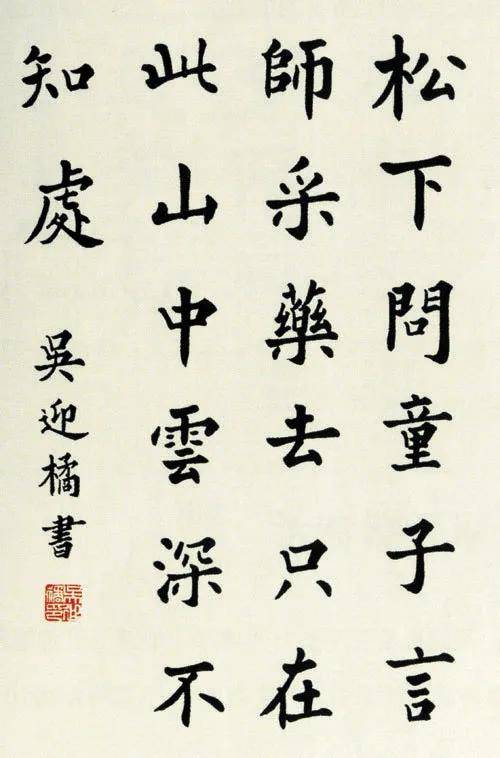 松下問童子言
師采藥去只在
此山中雲深不
知處
吳迎橘書